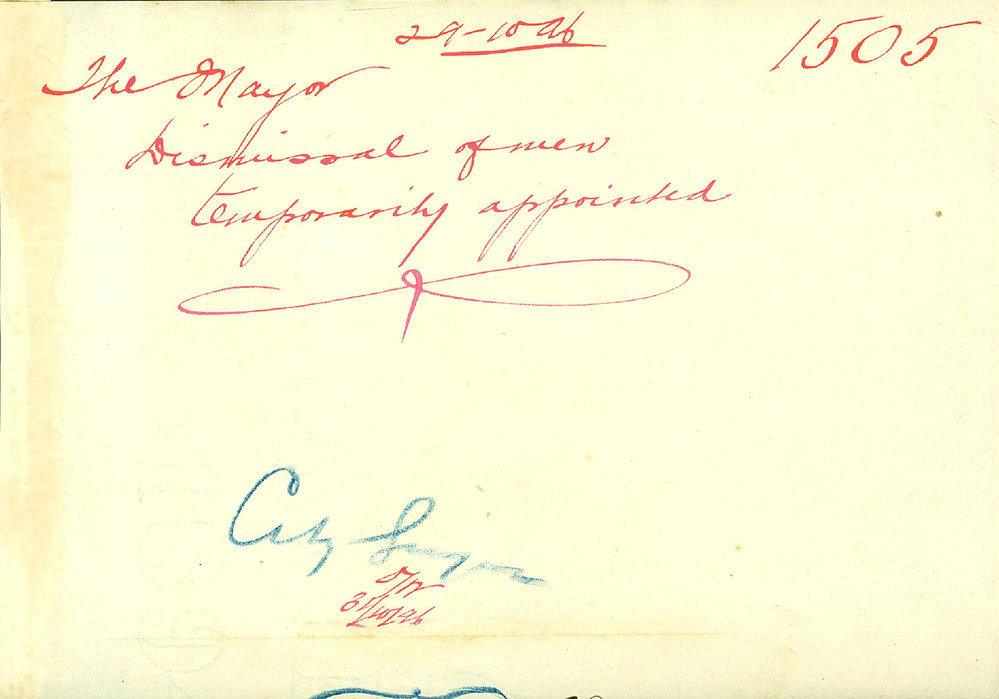 29-10 96
1505
The Mayor
Dismissal of men
temporarily appointed
City Surveyor
31/10/96